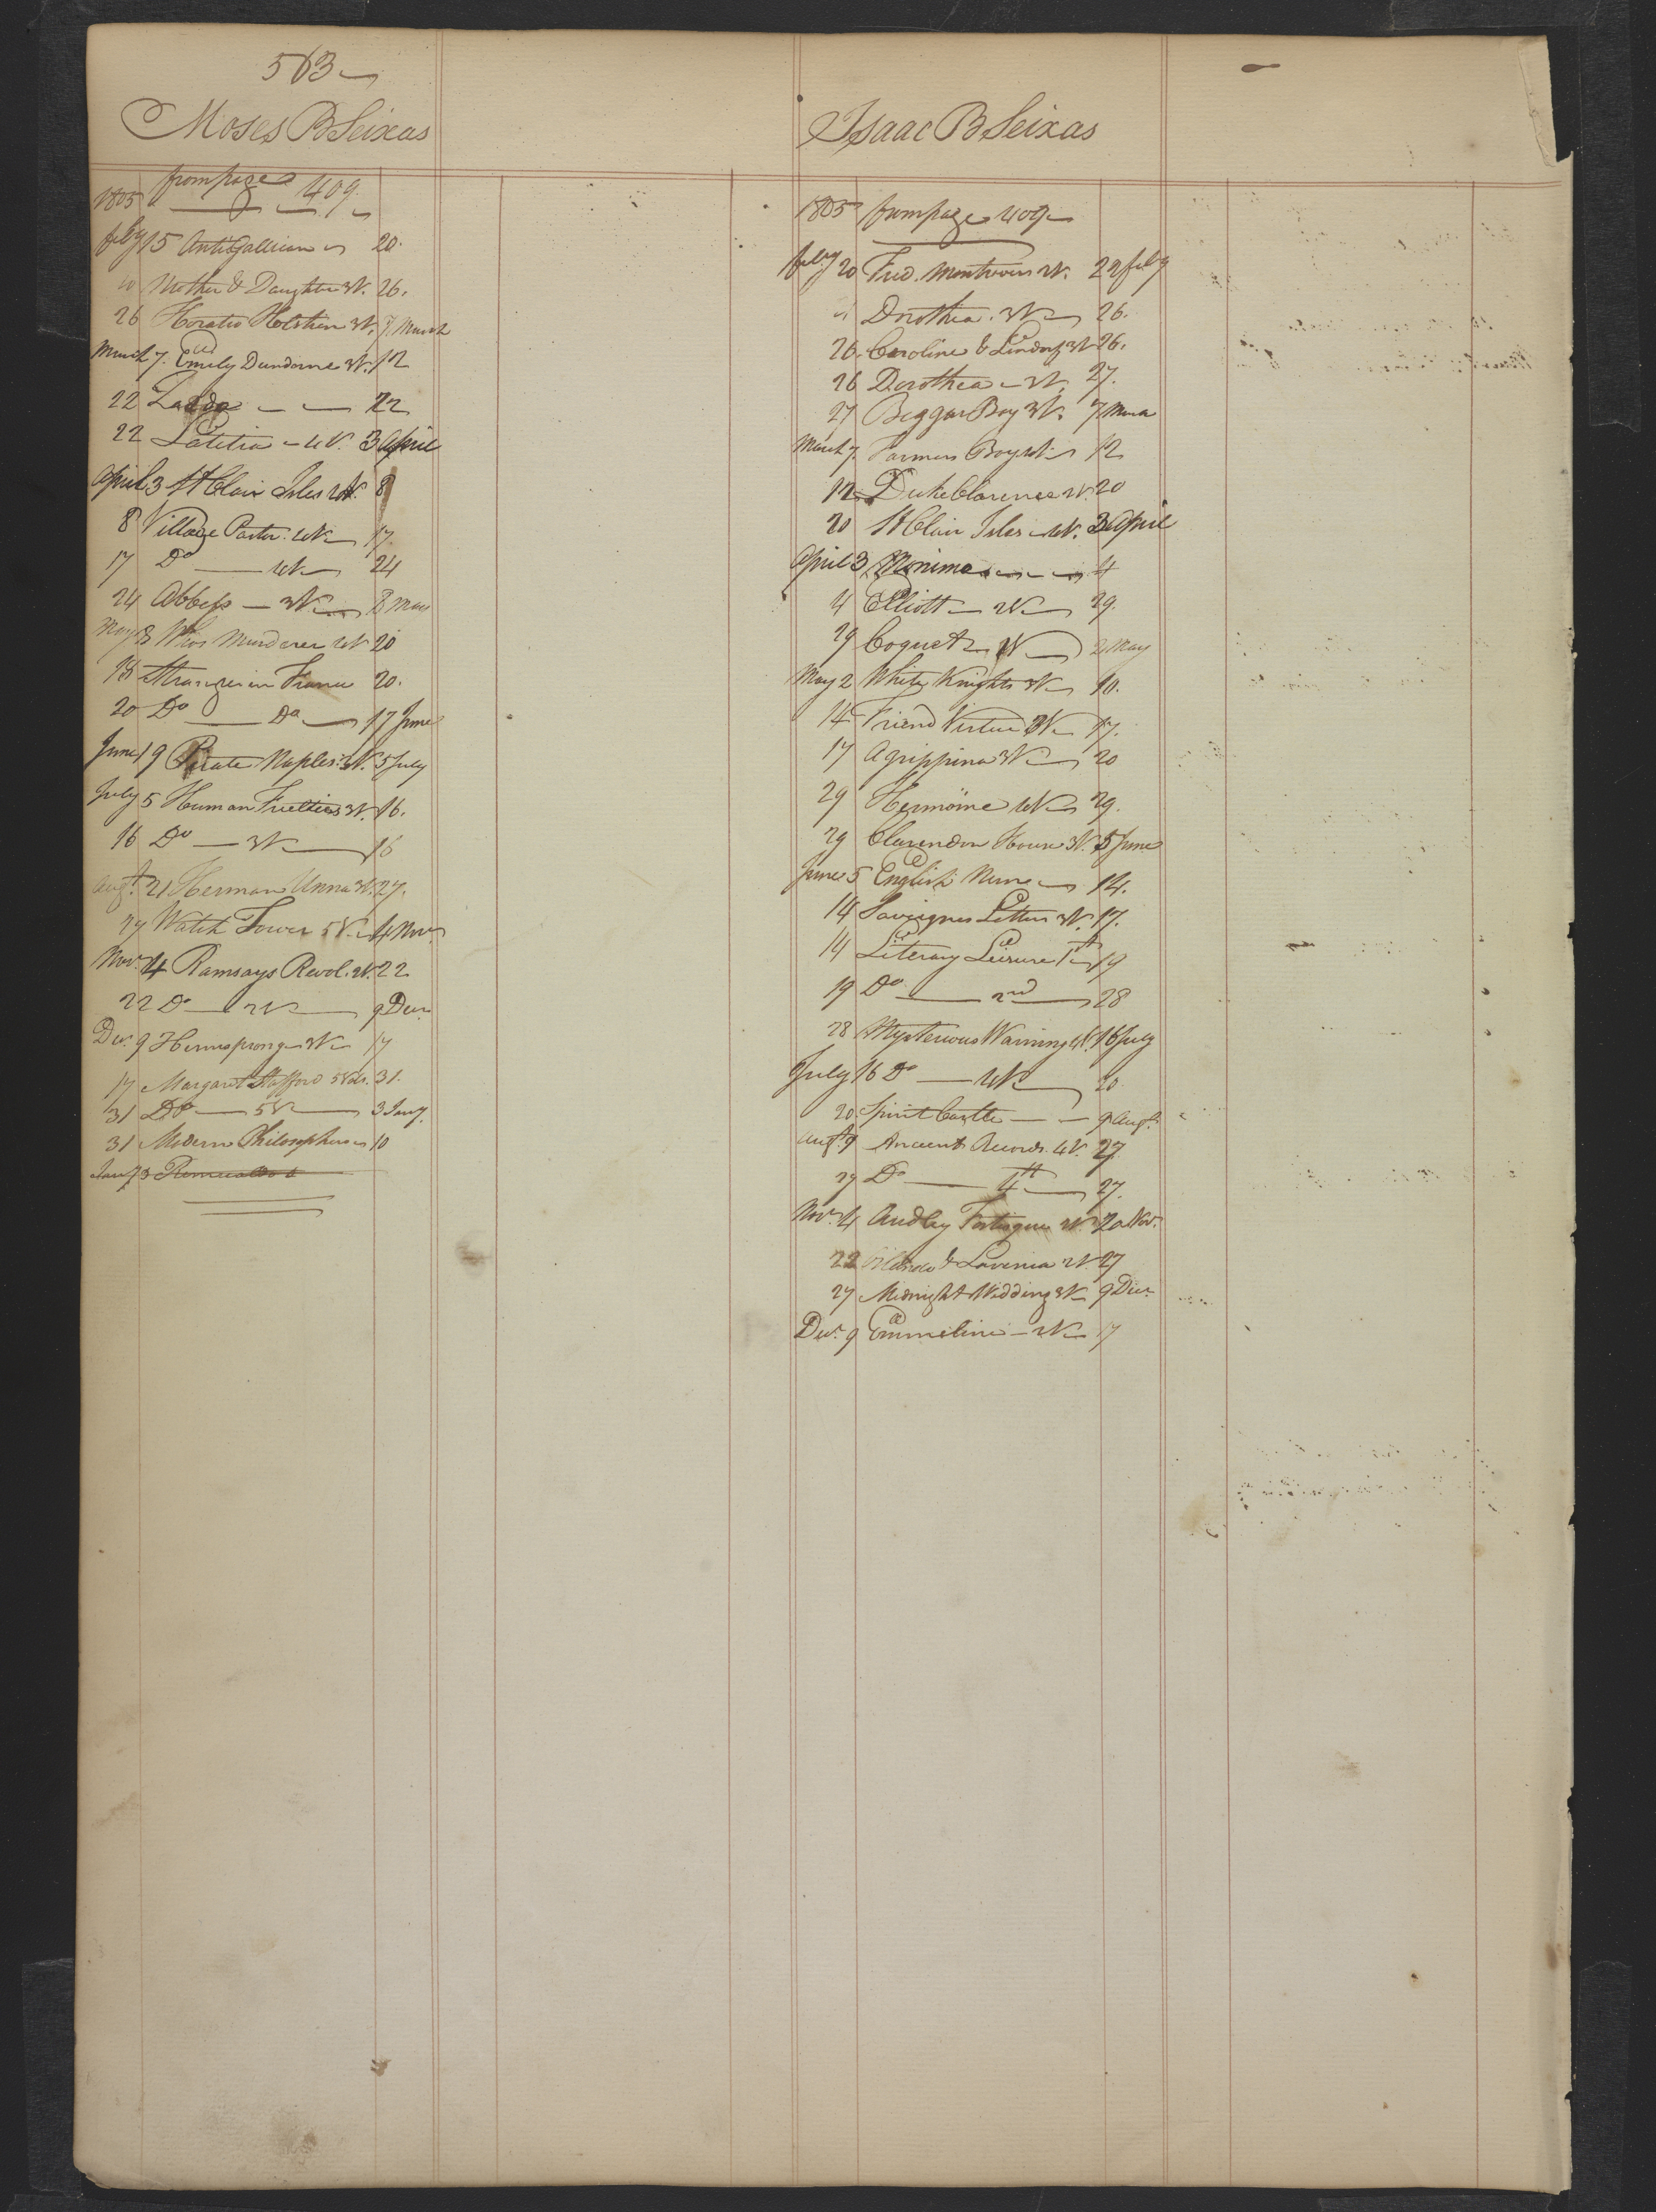 563
Moses B Seixas
1805 from page 409
feby 15 Antigallican 20.
Mother & Daughter 3V. 26.
26 Horatio Holstein 3V. 7 March
March 7. Emily Dundorne 3V. 12
22 22
22 Letitia 4V. 3 April
April 3 St Clair Isles 4V. 8
8 Village Pastor 4V 17.
17 Do 4V 24
24 Abbess 3V 8 May
May 8 Wios Murderer 4V 20
18 Stranger in France 20.
20 Do Do 17 June
June 19 Pirate Naples 3V. 5 July
July 5 Human Frielties 3V. 16.
16 Do 3V 16
Augt. 21 Herman Unna 3V. 27.
27 Watch Tower 5V. 4 Nov.
Nov. 4 Ramsays Revol. 2V. 22
22 Do 2V 9 Decr
Dec. 9 Hermsprong 3V 17
17 Margaret Stafford 5 Vols. 31.
31 Do 5V 3 Jany.
31 Modern Philosophers 10
Jany 3 Romualdo
Isaac B Seixas
1805 from page 409
feby 20 Fred. Montrovers 2V. 22 feby
Dorothea. 3V 26.
26. Caroline & Lindorf 3V 26.
26 Dorothea 3V. 27.
27 Beggar Boy 3V. 7
March 7. Farmers Boy 4V. 12
12 Duke Clarence 4V. 20
20 St Clair Isles 4V. 3 April
April 3 Monima 4
4 Elliott 2V 29.
29 Coquet 2V 2 May
May 2 White Knights 3V 10.
14 Friend Virtue 3V 17.
17 Agrippina 3V 20
29 Hermoine 4V 29.
29 Clarendon House 3V. 5 June
June 5 English Nun 14.
14 Savoignes Letters 3V. 17.
14 Literary Leisure 1st 19
19 Do 2nd 28
28 Mysterious Warning 4V. 16 July
July 16 Do 4V 20
20. Spirit Castle 9 Augt.
Augt. 9 Ancient Records. 4V. 27.
27 Do 4th 27.
Nov. 4 Audley Fortesque 2V. 20 Nov.
22 Orlando & Lavinia 2V 27
27 Midnight Wedding 3V 9 Decr.
Decr. 9 Emmeline 2V 17